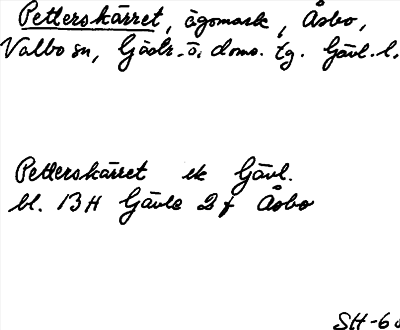 Petterskärret, ägomark, Åsbo,
Valbo sn, Gästr. ö. doms. tg. Gävl. l.
Petterskärret ek Gävl.
bl. 13H Gävle 2 f Åsbo
SH-6